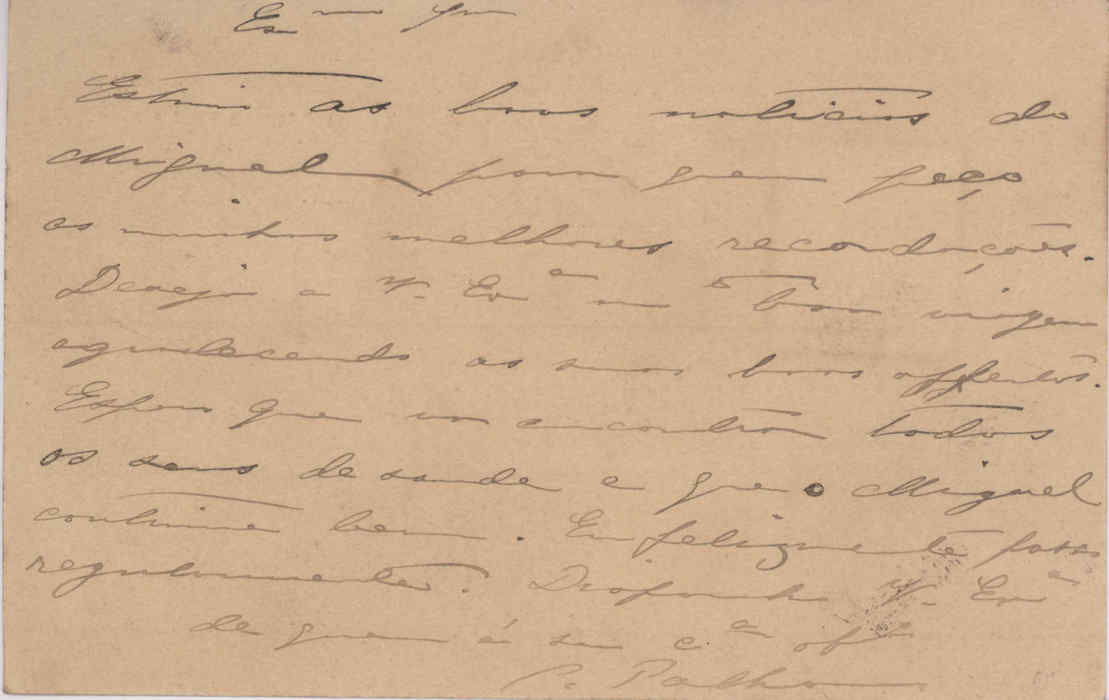 Exmo Sr
Estimo as boas noticias do
Miguel para quem peço
as minhas melhores recordações.
Desejo a V. Exa uma boa viagem
agradecendo as suas boas offertas.
Espero que vá encontrar todos
os seus de saude e que o Miguel
continue bem. Eu felizmente passo
regularmente. Disponha V. Exa
de quem é seu
P. Palha